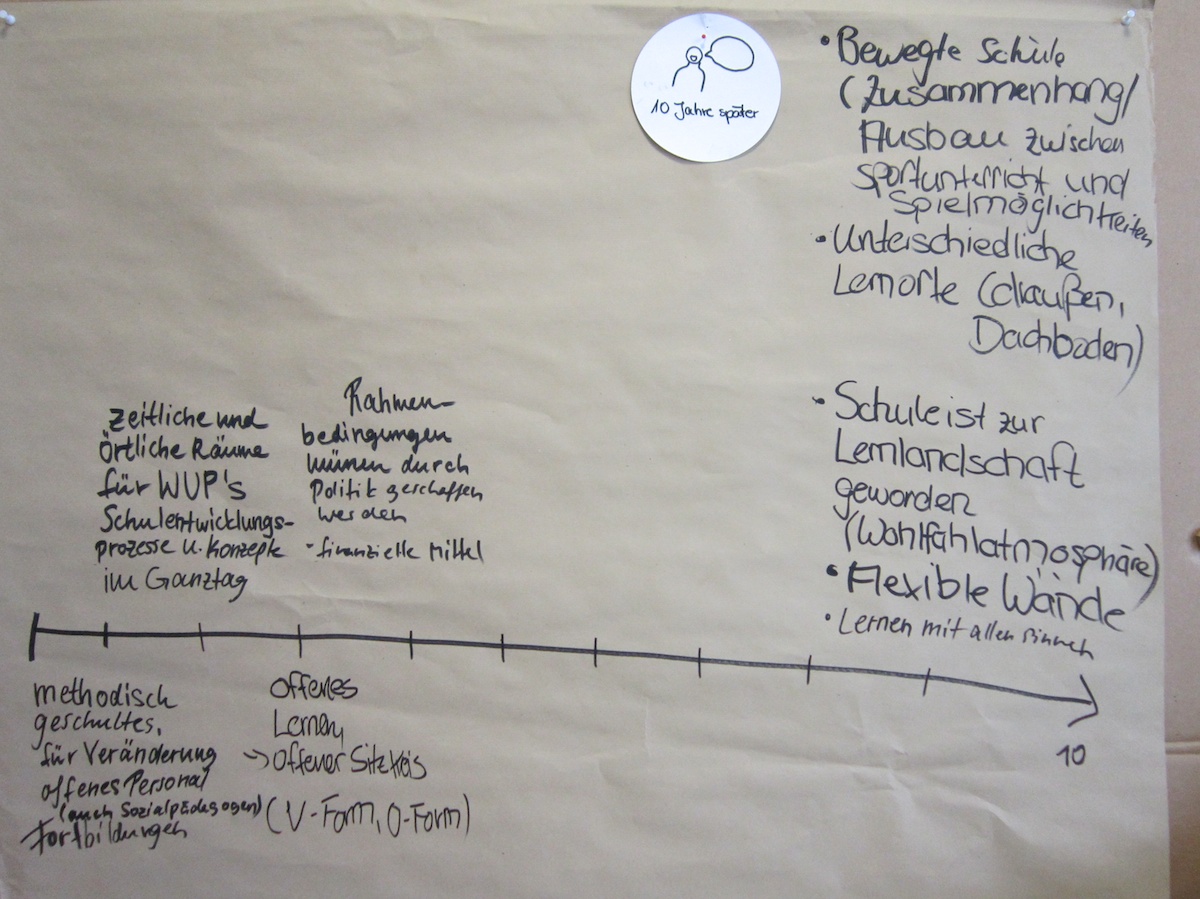 10 Jahre später
• Bewegte Schule
(Zusammenhang/
Ausbau zwischen
Sportunterricht und
Spielmöglichkeiten
• Unterschiedliche
Lernorte (draußen,
Dachboden)
• Schule ist zur
Lernlandschaft
geworden
(Wohlfühlatmosphäre)
• Flexible Wände
• Lernen mit allen Sinnen
Zeitliche und
örtliche Räume
für WUP's
Schulentwicklungs-
prozesse u. Konzepte
im Ganztag
Rahmen-
bedingungen
müssen durch
Politik geschaffen
werden
• finanzielle Mittel
methodisch
geschultes,
für Veränderung
offenes Personal
(auch Sozialpädagogen)
Fortbildungen
Offenes
Lernen
→ Offener Sitzkreis
(V-Form, O-Form)
10